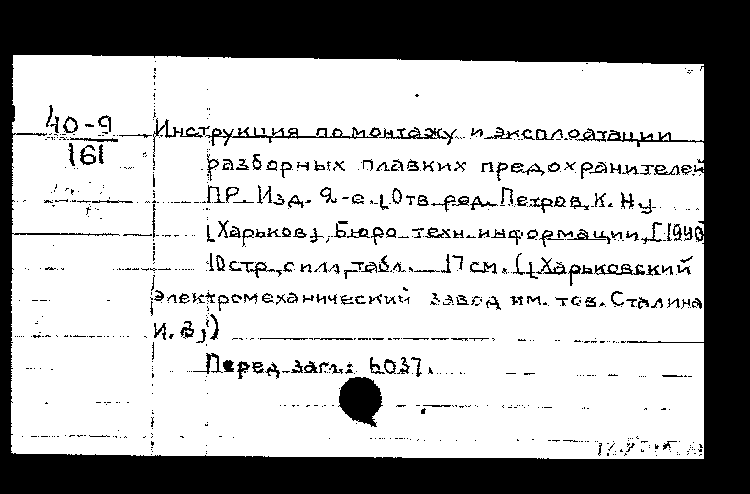 40-9
161
Инструкция по монтажу и эксплоатации
разборных плавких предохранителей
ПР. Изд. 2-е. [Отв. ред. Петров, К. Н.]
[Харьков], Бюро техн. информации, [1940]
10 стр., с илл., табл. 17 см. ([Харьковский
электромеханический завод им. тов. Сталина
И. В.])
Перед загл.: 6037.